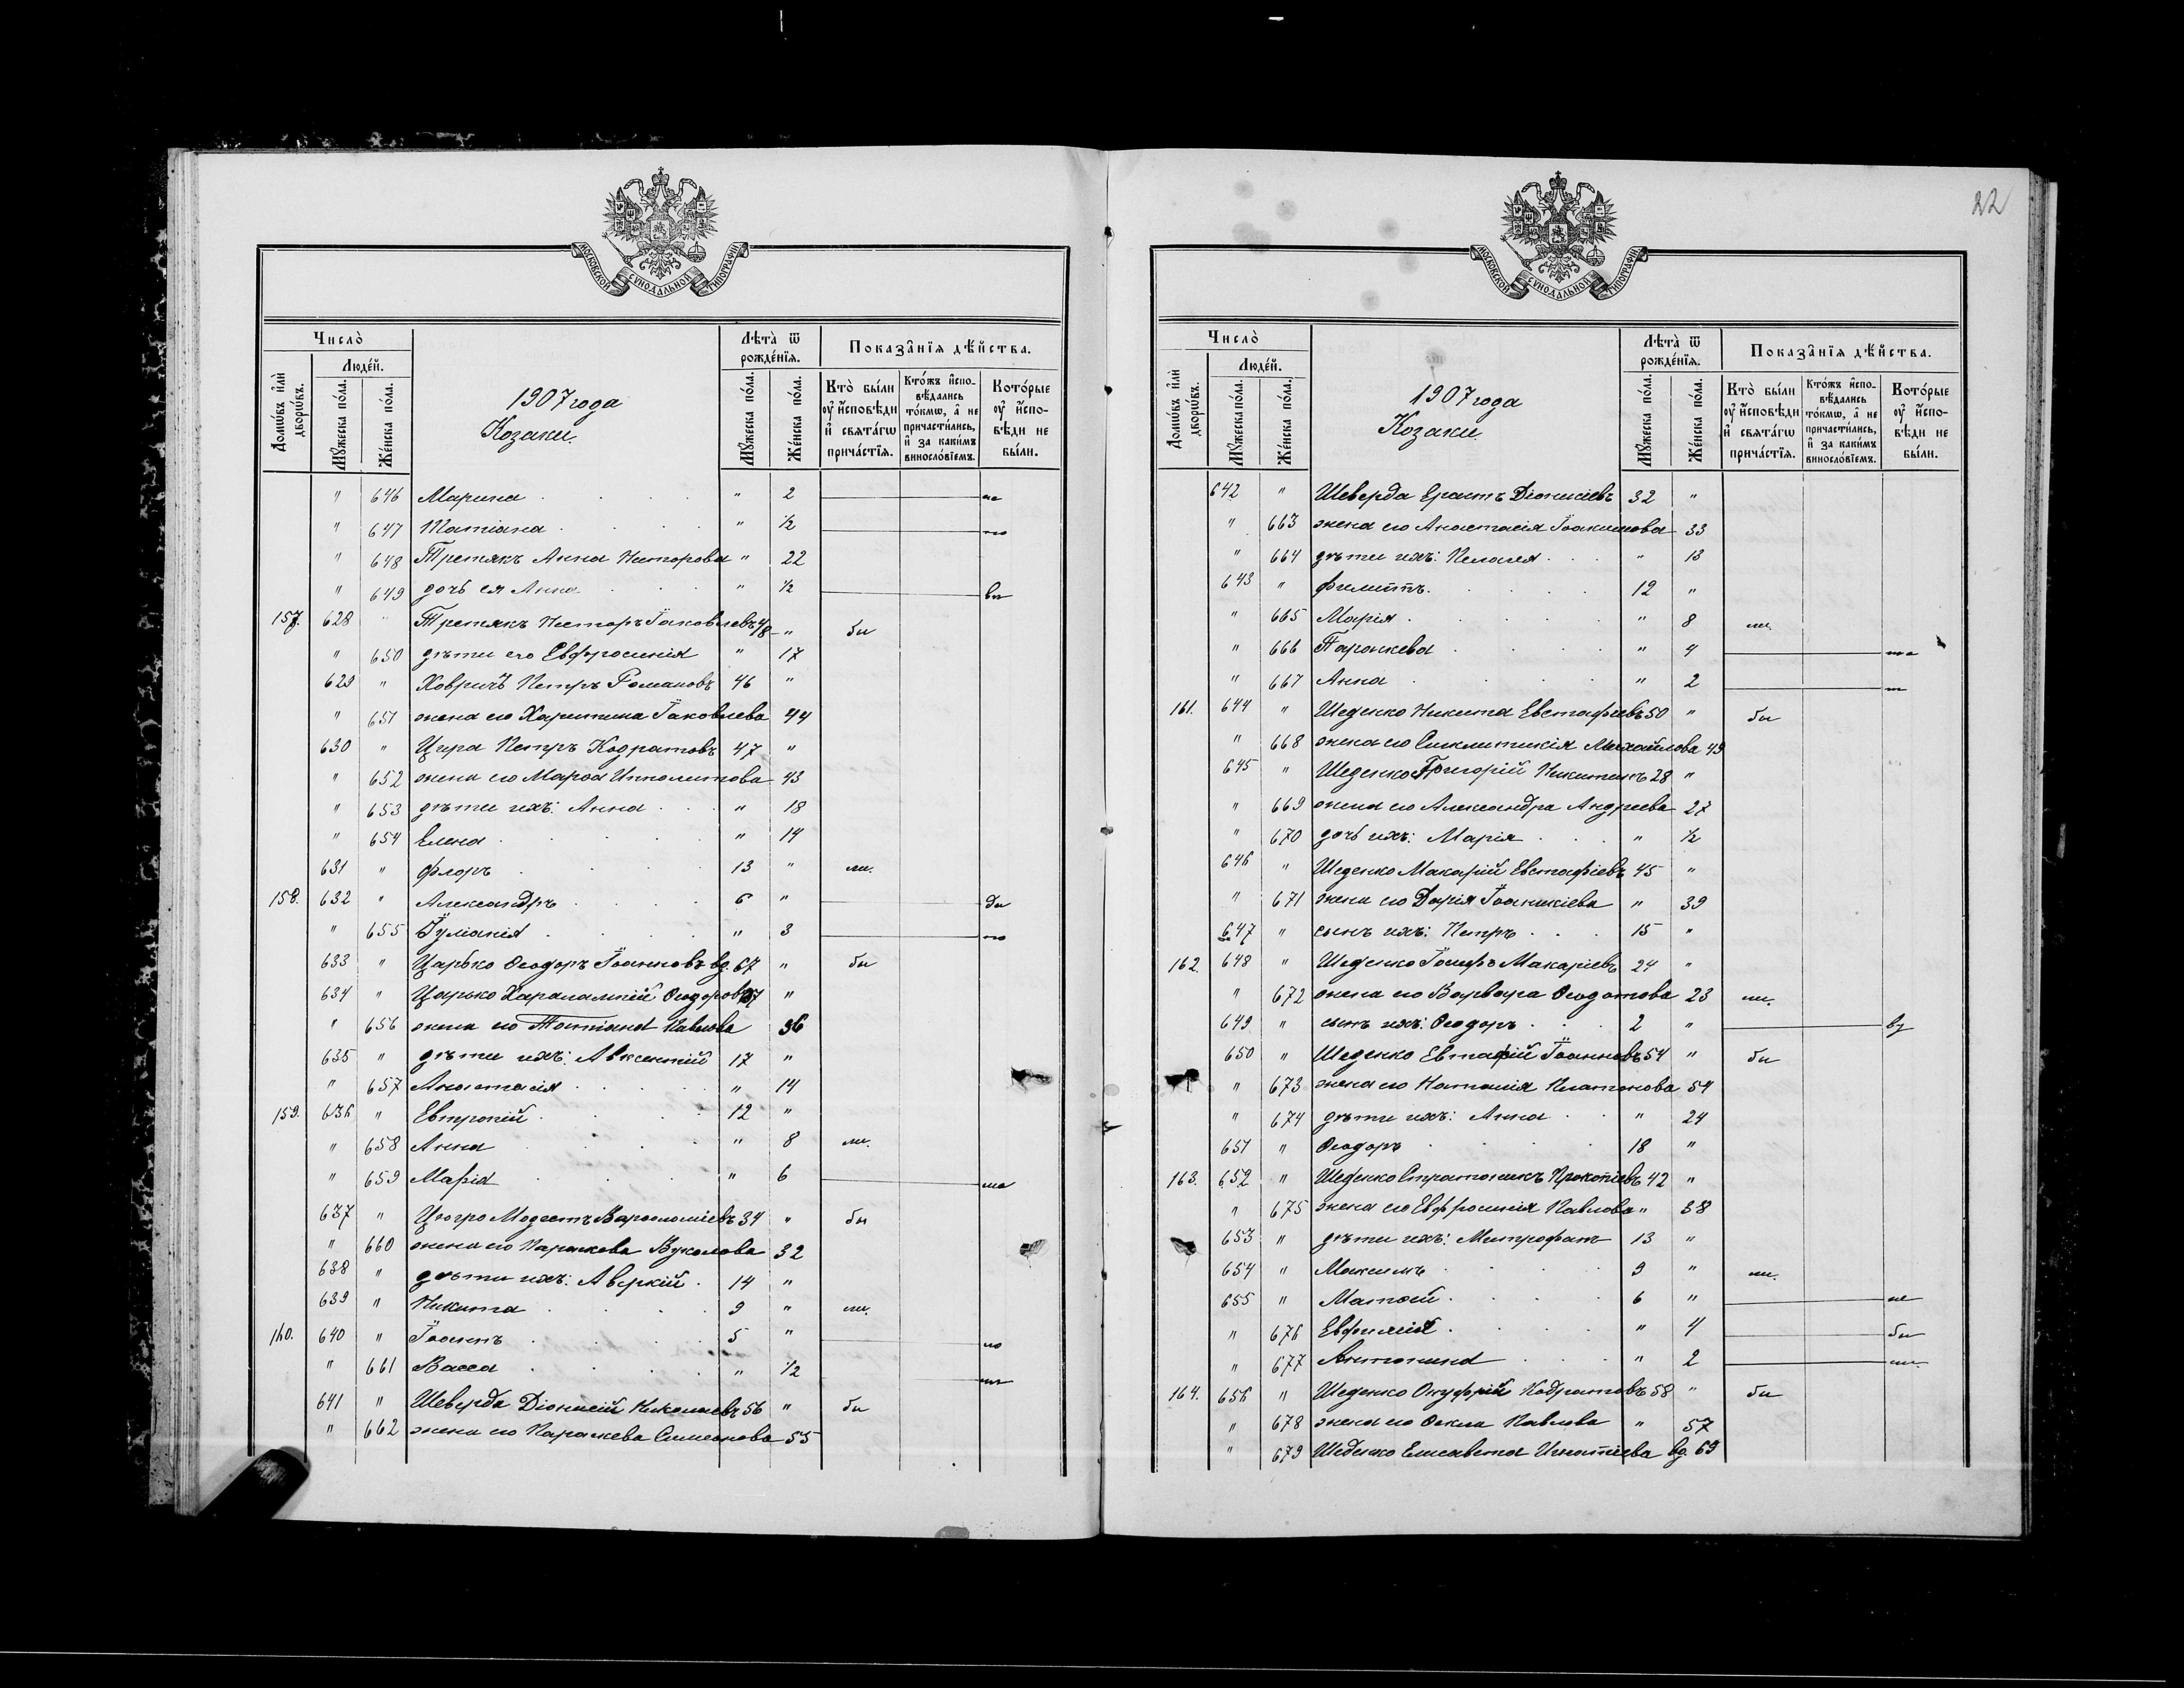 МОСКОВСКОЙ СУНОДАЛЬНОЙ ТИПОГРАФІИ
Число̀
Домѡ́въ и҆лѝ дворѡ́въ.
Люде́й.
Мꙋжеска по́ла.
Же́нска по́ла.
1907 года
Козаки.
Лѣта̀ ѿ рожде́нїѧ.
Мꙋжеска по́ла.
Же́нска по́ла.
Показа̑нїѧ дѣ́йства.
Кто̀ бы́ли оу҆ и҆сповѣ́ди и҆ свѧта́гѡ прича́стїѧ.
Кто́жъ и҆спо-вѣ́дались то́кмѡ, а҆ не причасти́лись, и҆ за каки́мъ винослѡ́вїемъ.
Кото́рые оу҆ и҆спо-вѣ́ди не бы́ли.
" 646 Марина " 2 не
" 647 Татіана " ½ по
" 648 Третякъ Анна Несторова " 22
" 649 дочь ея Анна " ½
157. 628 " Третякъ Несторъ Іаковлевъ 48 " бы
" 650 дѣти его Евфросинія " 17
629 " Ховричъ Петръ Романовъ 46 "
" 651 жена его Харитина Іаковлева 44
630 " Цира Петръ Кодратовъ 47 "
" 652 жена его Марѳа Ипполитова 43
" 653 дѣти ихъ: Анна " 18
" 654 Елена " 14
631 " Флоръ 13 " ли.
158. 632 " Александръ 6 "
" 655 Іуліанія " 3 по
633 " Царько Ѳеодоръ Іоанновъ вд. 67 " бы
634 " Царько Харалампій Ѳеодоровъ 37 "
" 656 жена его Татіана Павлова 36
635 " дѣти ихъ: Авксентій 17 "
" 657 Анастасія " 14
159. 636 " Евтропій 12 "
" 658 Анна " 8 ли.
" 659 Марія " 6
637 " Цюгро Модестъ Варѳоломіевъ 34 " бы
" 660 жена его Параскева Вуколова 32
638 " дѣти ихъ: Аверкій 14 "
639 " Никита 9 " ли.
160. 640 " Іоаннъ 5 "
" 661 Васса " ½
641 " Шеверда Діонисій Николаевъ 56 " бы
" 662 жена его Параскева Симеонова 55
22
МОСКОВСКОЙ СУНОДАЛЬНОЙ ТИПОГРАФІИ
Число̀
Домѡ́въ и҆лѝ дворѡ́въ.
Люде́й.
Мꙋжеска по́ла.
Же́нска по́ла.
1907 года
Козаки.
Лѣта̀ ѿ рожде́нїѧ.
Мꙋжеска по́ла.
Же́нска по́ла.
Показа̑нїѧ дѣ́йства.
Кто̀ бы́ли оу҆ и҆сповѣ́ди и҆ свѧта́гѡ прича́стїѧ.
Кто́жъ и҆спо-вѣ́дались то́кмѡ, а҆ не причасти́лись, и҆ за каки́мъ винослѡ́вїемъ.
Кото́рые оу҆ и҆спо-вѣ́ди не бы́ли.
642 " Шеверда Ерастъ Діонисіевъ 32 "
" 663 жена его Анастасія Іоакимова 33
" 664 дѣти ихъ: Пелагея " 13
643 " Филиппъ 12 "
" 665 Марія " 8 ли.
" 666 Параскева " 4
" 667 Анна " 2
161. 644 " Шеденко Никита Евстафіевъ 50 " бы
" 668 жена его Синклитикія Михайлова 49
645 " Шеденко Григорій Никитинъ 28 "
" 669 жена его Александра Андреева 27
" 670 дочь ихъ: Марія " ½
646 " Шеденко Макарій Евстафіевъ 45 "
" 671 жена его Дарія Іоанникіева " 39
647 " сынъ ихъ: Петръ 15 "
162. 648 " Шеденко Іосифъ Макаріевъ 24 "
" 672 жена его Варвара Ѳеодотова 23 ли.
649 " сынъ ихъ: Ѳеодоръ 2 "
650 " Шеденко Евтафій Іоанновъ 54 " бы
" 673 жена его Наталія Платонова 54
" 674 дѣти ихъ: Анна " 24
651 " Ѳеодоръ 18 "
163. 652 " Шеденко Стратоникъ Прокопіевъ 42 "
" 675 жена его Евфросинія Павлова " 38
653 " дѣти ихъ: Митрофанъ 13 "
654 " Максимъ 9 " ли.
655 " Матѳей 6 " не
" 676 Евфимія " 4 бы
" 677 Антонина " 2 ли.
164. 656 " Шеденко Онуфрій Кодратовъ 58 " бы
" 678 жена его Ѳекла Павлова " 57
" 679 Шеденко Елисавета Игнатіева вд. 69